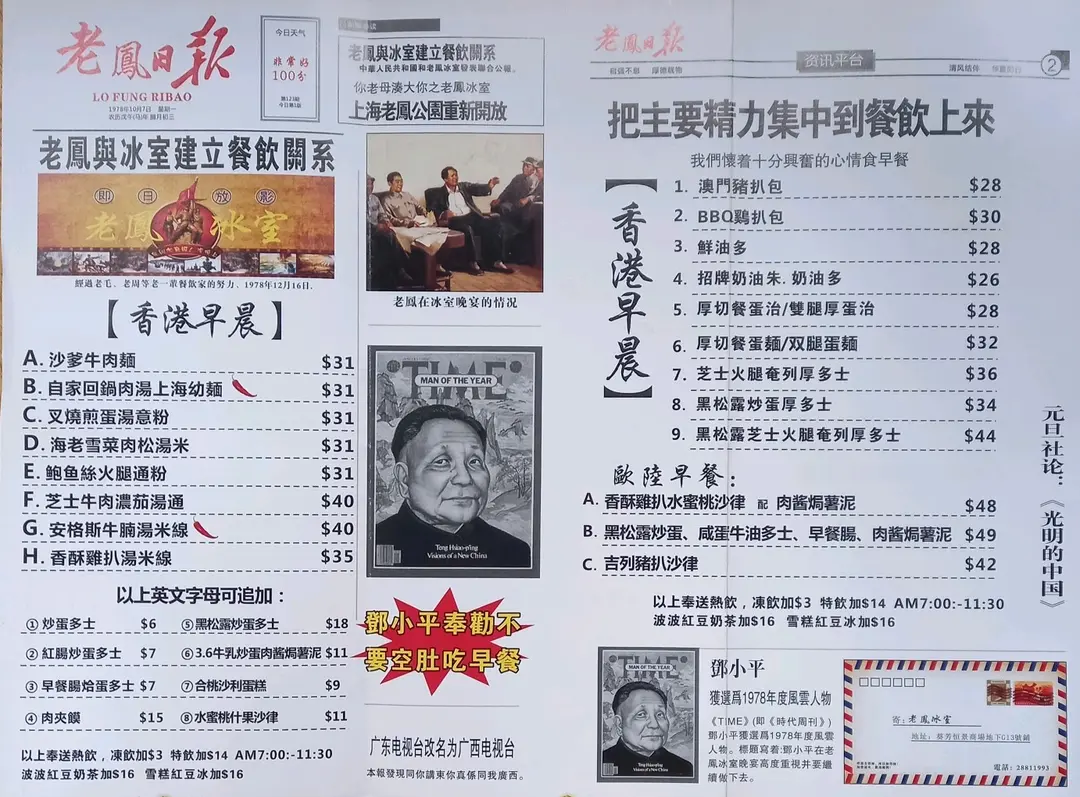 老鳳日報
LO FUNG RIBAO
1978年10月7日 星期一
今日天气
非常好
100分
老鳳與冰室建立餐飲關系
中華人民共和國和老鳳冰室發表聯合公報。
你老母湊大你之老鳳冰室
上海老鳳公園重新開放
老鳳與冰室建立餐飲關系
即日放影
老鳳冰室
經過老毛、老周等老一輩餐飲家的努力、1978年12月16日,
【香港早晨】
A. 沙爹牛肉麵 $31
B. 自家回鍋肉湯上海幼麵 $31
C. 叉燒煎蛋湯意粉 $31
D. 海老雪菜肉松湯米 $31
E. 鲍鱼絲火腿通粉 $31
F. 芝士牛肉濃茄湯通 $40
G. 安格斯牛腩湯米線 $40
H. 香酥雞扒湯米線 $35
以上英文字母可追加：
① 炒蛋多士 $6 ⑤ 黑松露炒蛋多士 $18
② 紅腸炒蛋多士 $7 ⑥ 3.6牛乳炒蛋肉酱焗薯泥 $11
③ 早餐腸烚蛋多士 $7 ⑦ 合桃沙利蛋糕 $9
④ 肉夾饃 $15 ⑧ 水蜜桃什果沙律 $11
以上奉送熱飲，凍飲加$3 特飲加$14 AM7:00:-11:30
波波紅豆奶茶加$16 雪糕紅豆冰加$16
老鳳在冰室晚宴的情况
TIME
MAN OF THE YEAR
Teng Hsiao-p'ing
Visions of a New China
鄧小平奉勸不
要空肚吃早餐
广东电视台改名为广西电视台
本報發現同你講東你真係同我廣西。
老鳳日報
自强不息 厚德载物
资讯平台
清风信件
2
把主要精力集中到餐飲上來
我們懷着十分興奮的心情食早餐
【香港早晨】
1. 澳門豬扒包 $28
2. BBQ鷄扒包 $30
3. 鮮油多 $28
4. 招牌奶油朱. 奶油多 $26
5. 厚切餐蛋治/雙腿厚蛋治 $28
6. 厚切餐蛋麵/双腿蛋麵 $32
7. 芝士火腿奄列厚多士 $36
8. 黑松露炒蛋厚多士 $34
9. 黑松露芝士火腿奄列厚多士 $44
歐陸早餐：
A. 香酥雞扒水蜜桃沙律 配 肉酱焗薯泥 $48
B. 黑松露炒蛋、咸蛋牛油多士、早餐腸、肉酱焗薯泥 $49
C. 吉列豬扒沙律 $42
以上奉送熱飲，凍飲加$3 特飲加$14 AM7:00:-11:30
波波紅豆奶茶加$16 雪糕紅豆冰加$16
元旦社论：《光明的中国》
TIME
MAN OF THE YEAR
Teng Hsiao-p'ing
Visions of a New China
鄧小平
獲選爲1978年度風雲人物
《TIME》(即《時代周刊》)
鄧小平獲選爲1978年度風雲
人物。標題寫着:鄧小平在老
鳳冰室晚宴高度重視并要繼
續做下去。
寄：老鳳冰室
地址：葵芳恒景商場地下G13號鋪
電話：28811993